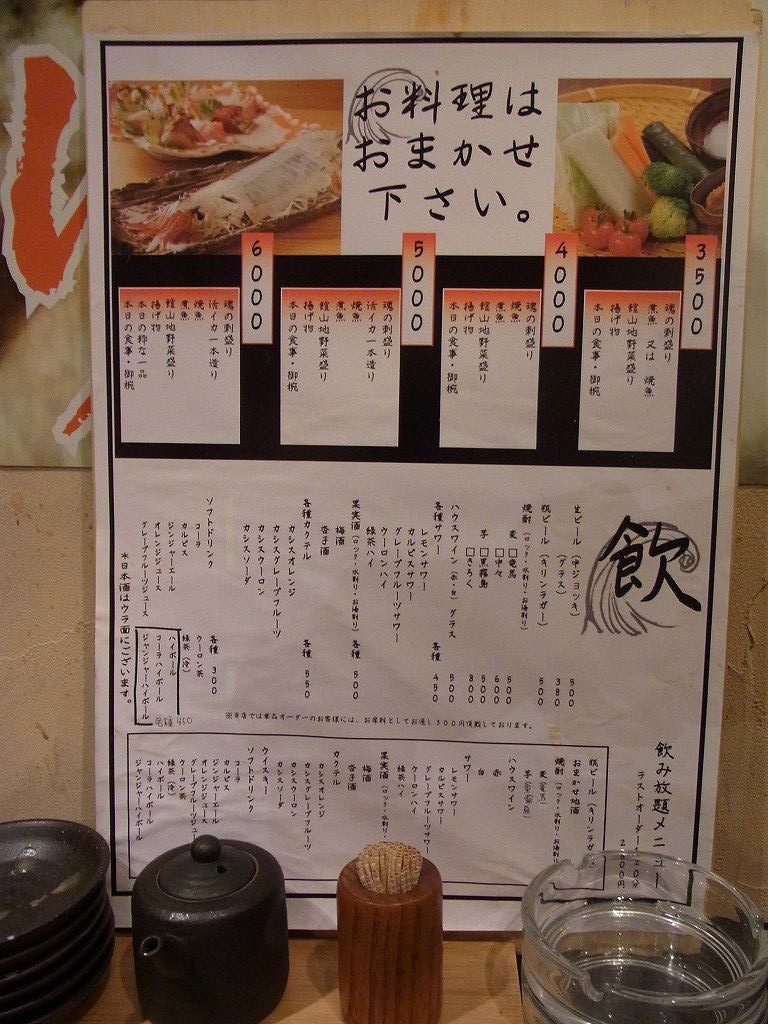 お料理は
おまかせ
下さい。
3500
魂の刺盛り
煮魚 又は 焼魚
館山地野菜盛り
揚げ物
本日の食事・御椀
4000
魂の刺盛り
焼魚
煮魚
館山地野菜盛り
揚げ物
本日の食事・御椀
5000
魂の刺盛り
活イカ一本造り
焼魚
煮魚
館山地野菜盛り
揚げ物
本日の食事・御椀
6000
魂の刺盛り
活イカ一本造り
焼魚
煮魚
館山地野菜盛り
揚げ物
本日の粋な一品
本日の食事・御椀
飲
生ビール (中ジョッキ) 500
(グラス) 380
瓶ビール (キリンラガー) 500
焼酎 (ロック・水割り・お湯割り)
麦 □竜馬 500
□中々 600
芋 □黒霧島 500
□きろく 800
ハウスワイン (赤・白) グラス 500
各種サワー 各種 450
レモンサワー
カルピスサワー
グレープフルーツサワー
ウーロンハイ
緑茶ハイ
果実酒 (ロック・水割り・お湯割り) 各種 500
梅酒
杏子酒
各種カクテル 各種 550
カシスオレンジ
カシスグレープフルーツ
カシスウーロン
カシスソーダ
ソフトドリンク 各種 300
コーラ
カルピス
ジンジャーエール
オレンジジュース
グレープフルーツジュース
ウーロン茶
緑茶 (冷)
ハイボール
コーラハイボール
ジャンジャーハイボール 各種 450
*日本酒はウラ面にございます。
※当店では単品オーダーのお客様には、お席料としてお通し300円頂戴しております。
飲み放題メニュー
ラストオーダー 20分
2000円
瓶ビール (キリンラガー)
おまかせ地酒
焼酎 (ロック・水割り・お湯割り)
麦
芋
ハウスワイン
赤
白
サワー
レモンサワー
カルピスサワー
グレープフルーツサワー
ウーロンハイ
緑茶ハイ
果実酒 (ロック・水割り・お湯割り)
梅酒
杏子酒
カクテル
カシスオレンジ
カシスグレープフルーツ
カシスウーロン
カシスソーダ
ウイスキー
ソフトドリンク
コーラ
カルピス
ジンジャーエール
オレンジジュース
グレープフルーツジュース
ウーロン茶
緑茶 (冷)
ハイボール
コーラハイボール
ジャンジャーハイボール